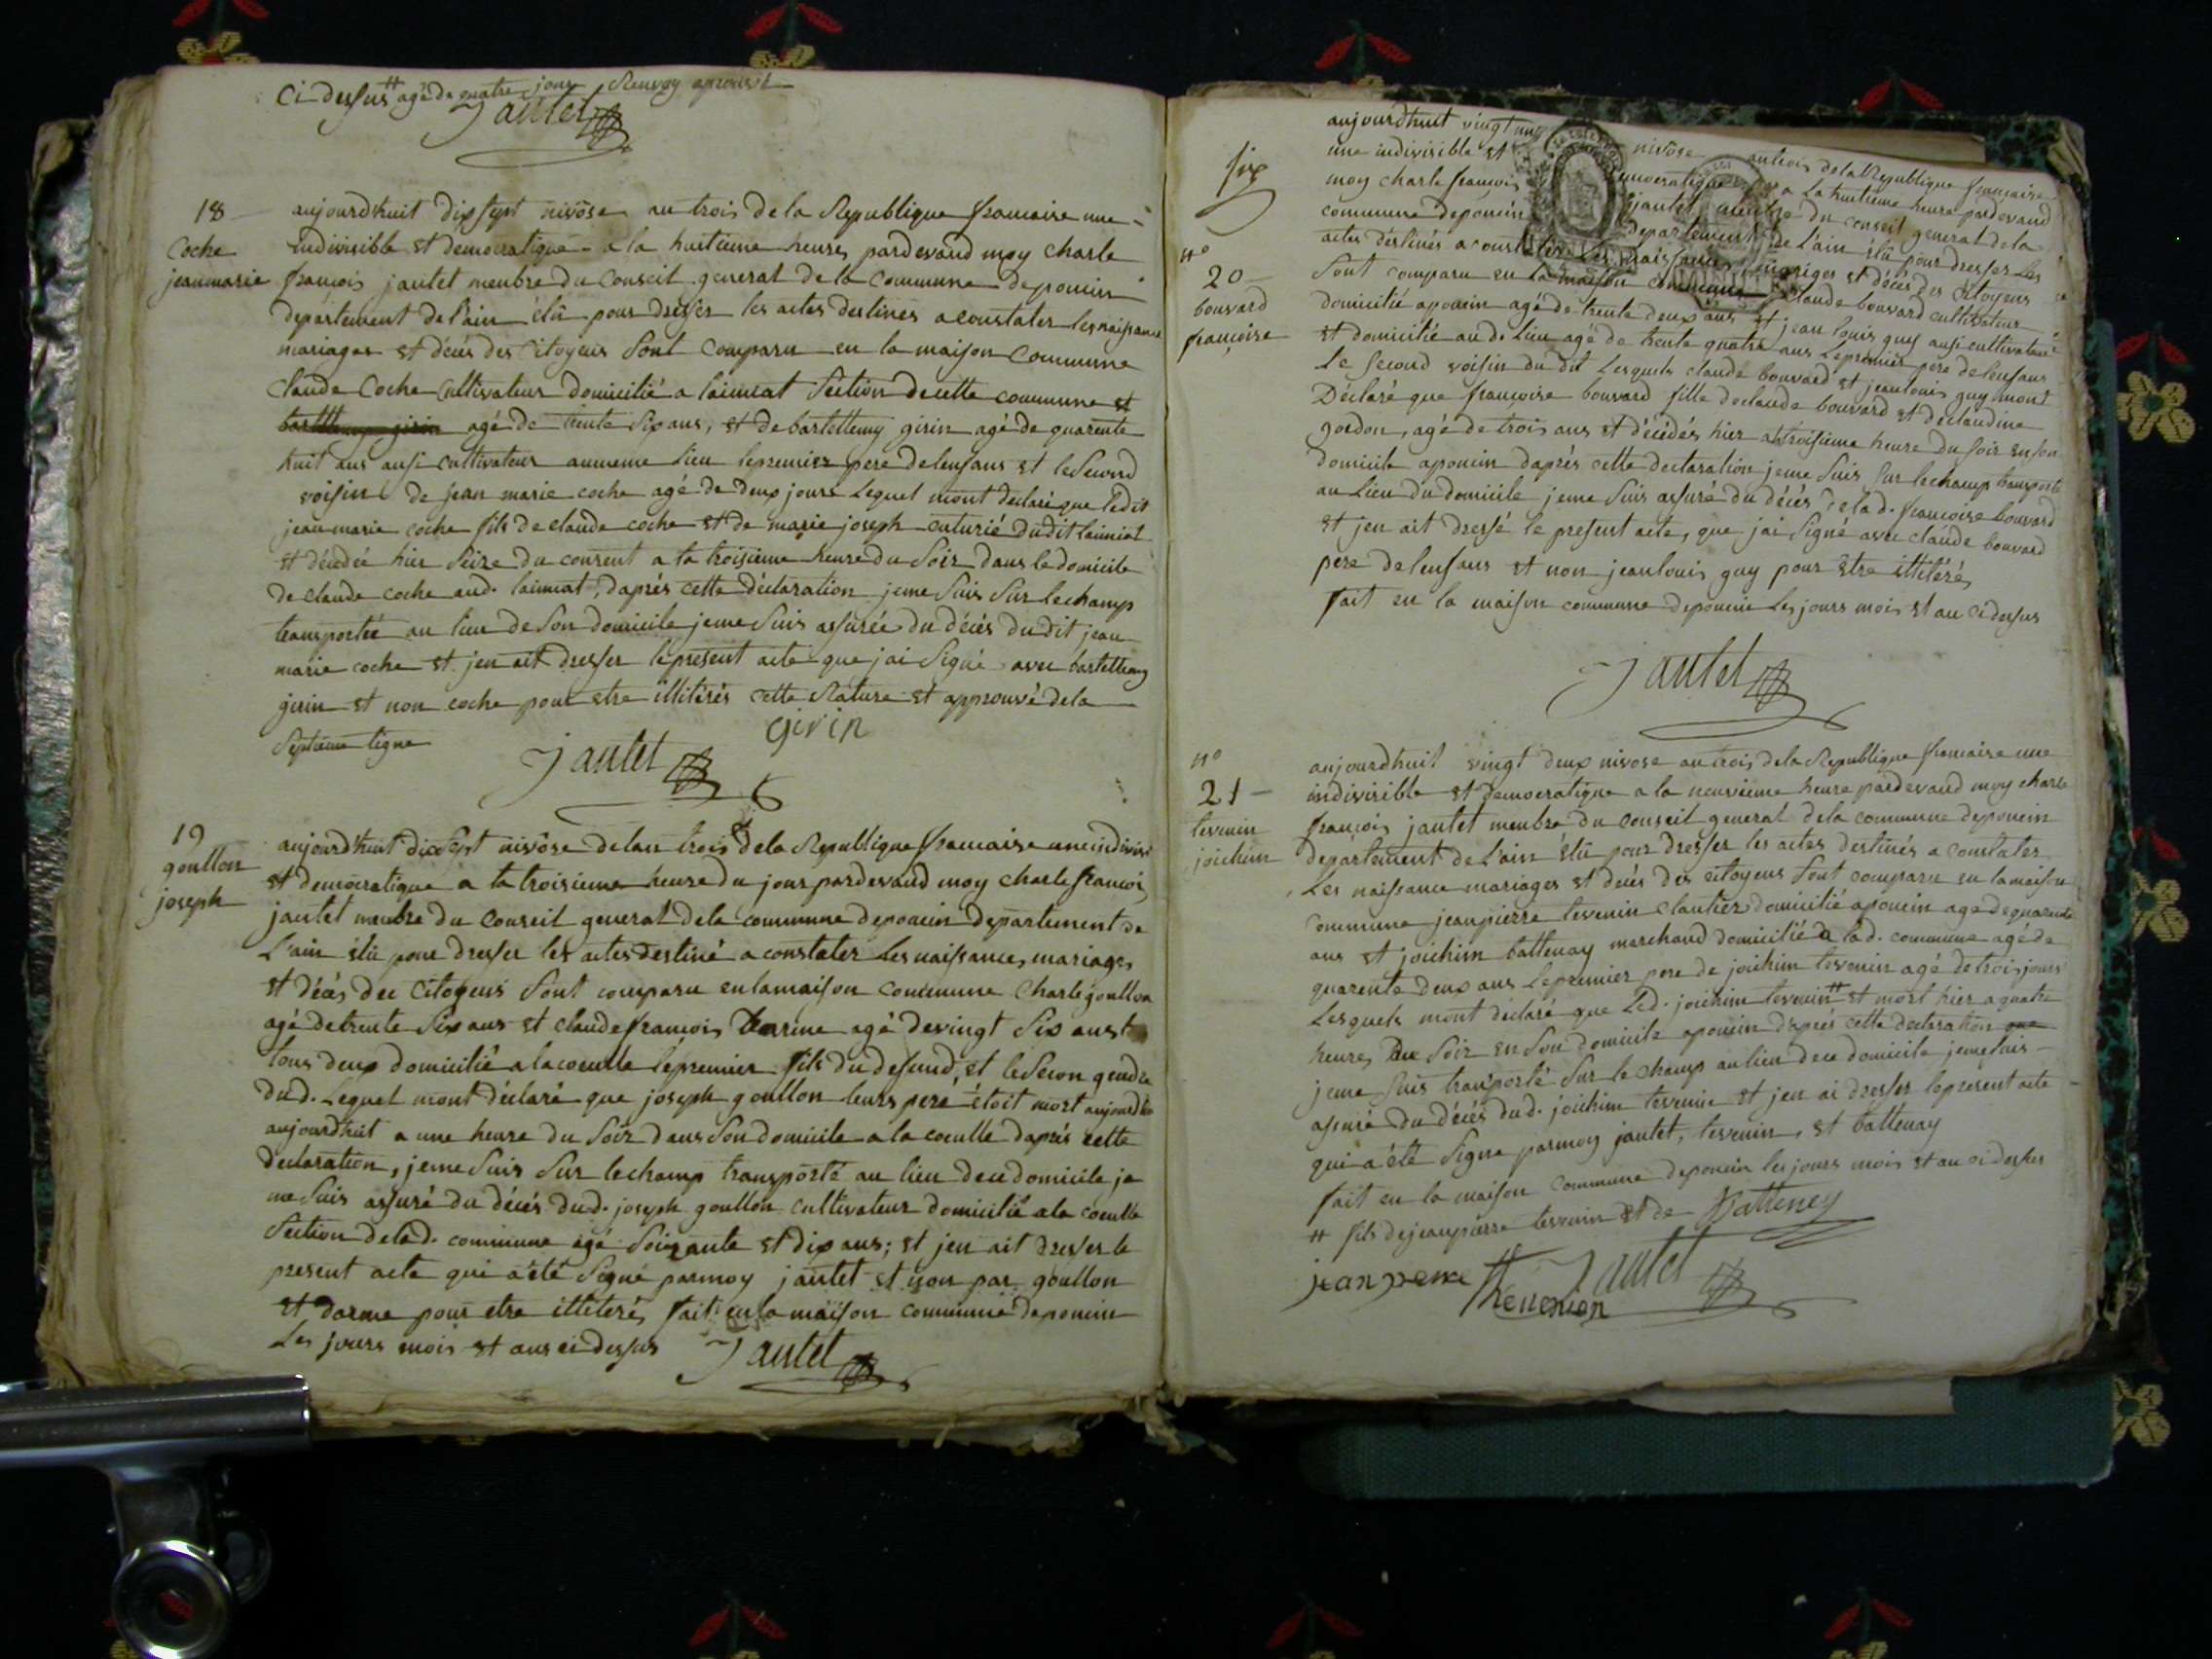 Ci dessus # agé de quatre jours Renvoy aprouvé
Jantet
18
Coche
jean marie
aujourdhuit dix sept nivôse an trois de la Republique francaise une
indivisible et democratique a la huitieme heures pardevand moy charle
francois jantet menbre du Conseit general de la Commune deponcin
departement de l'ain élû pour dresser les actes destinés a constater les naissance
mariages et décés des Citoyens Sont Comparu en la maison Commune
Claude Coche Cultivateur domicitié a laimiat Section decette commune et
bartellemy girin agé de trente Six ans, et de bartellemy girin agé de quarente
huit ans ausi cultivateur aumeme lieu lepremier pere delenfans et leSecond
voisin de jean marie coche agé de deux jours Lequel mont declaré que ledit
jean marie coche fils de claude coche et de marie joseph couturié dudit laimiat
et décédé hier Seize du courent a la troisieme heure du Soir dans le domicile
de claude coche aud. laimiat, daprés cette déclaration jeme Suis Sur lechamp
transportéé au lieu de Son domicile jeme Suis assurée du décés du dit jean
marie coche et jen ait dresser lepresent acte que jai Signé avec bartellemy
girin et non coche pour etre illitérés cette Rature et approuvé dela
Septieme ligne
girin
Jantet
19
goullon
joseph
aujourdhuit dix Sept nivôse delan trois dela Republique francaise une indivisi
et democratique a la troisieme heure du jour pardevand moy Charle francois
jantet menbre du Conseit general dela commune deponcin departement de
L'ain élû pour dresser les actes destiné a constater Les naissance, mariages
et décés des Citoyens Sont comparu enlamaison commune Charle goullon
agé detrente Six ans et claude francois Darme agé devingt Six ans
tous deux domicitié a lacoeulle lepremier fils du defund, et leSecon gendre
dud. Lequel mont déclaré que joseph goullon leurs pere étoit mort aujourdh
aujourdhuit a une heure du Soir dans Son domicile a la coeulle daprés cette
declaration, jeme Suis Sur lechamp transporté au lieu dece domicile je
me Suis assuré du décés dud. joseph goullon cultivateur domicitié ala coeulle
Section delad. commune agé Soixante et dix ans; et jen ait dresser le
present acte qui a été Signé parmoy jantet et non par goullon
et darme pour etre illeteré, fait enla maison commune deponcin
Les jours mois et ans ci dessus
Jantet
six
n°
20
bouvard
françoise
aujourdhuit vingt un nivôse antrois dela Republique francaise
une indivisible et democratique a La huitieme heure pardevand
moy charle francois jantet menbre du conseit general dela
commune deponcin departement de L'ain élû pour dresser Les
actes déstinés a constater Les naissance mariages et décés des Citoyens
Sont comparu en la maison commune Claude bouvard cultivateur
domicitié aponcin agé de trente deux ans et jean louis guy ausi cultivateur
et domicitié aud. Lieu agé de trente quatre ans Lepremier pere delenfans
Le Second voisin du dit Lesquels claude bouvard et jeanlouis guy mont
Déclaré que françoise bouvard fille declaude bouvard et declaudine
gordon, agé de trois ans et décédés hier a troisieme heure du Soir enson
domicile aponcin daprés cette declaration jeme Suis Sur lechamp transporté
au Lieu du domicile jeme Suis assuré du décés de la d. françoise bouvard
et jen ait dressé le present acte, que jai Signé avec claude bouvard
pere delenfans et non jeanlouis guy pour etre illitéré,
fait en la maison commune deponcin Les jours mois et an ci dessus
Jantet
n°
21
tevenin
joichim
aujourdhuit vingt deux nivose an trois dela Republique francaise une
indivisible et democratique a la neuvieme heure pardevand moy charle
francois jantet menbre du conseit general dela commune deponcin
département de L'ain élû pour dresser les actes destinés a constater
Les naissance mariages et décés des citoyens Sont comparu en lamaison
Commune jeanpierre tevenin cloutier domicitié aponcin agé dequarente
ans et joichim battenay marchand domicitié a lad. commune agé de
quarente deux ans Lepremier pere de joichim tevenin agé de trois jours
Lesquels mont declaré que Led. joichim tevenin # et mort hier a quatre
heures du Soir en Son domicile aponcin daprés cette declaration que
jeme Suis tranporté Sur le champ au lieu dece domicile jemesuis
assuré du décés dud. joichim tevenin et jen ai dresser lepresent acte
qui a été Signe parmoy jantet, tevenin, et battenay
fait en la maison commune deponcin les jours mois et an ci dessus
# fils dejeanpierre tevenin et de
Batteney
jean pierre Thevenien
Jantet